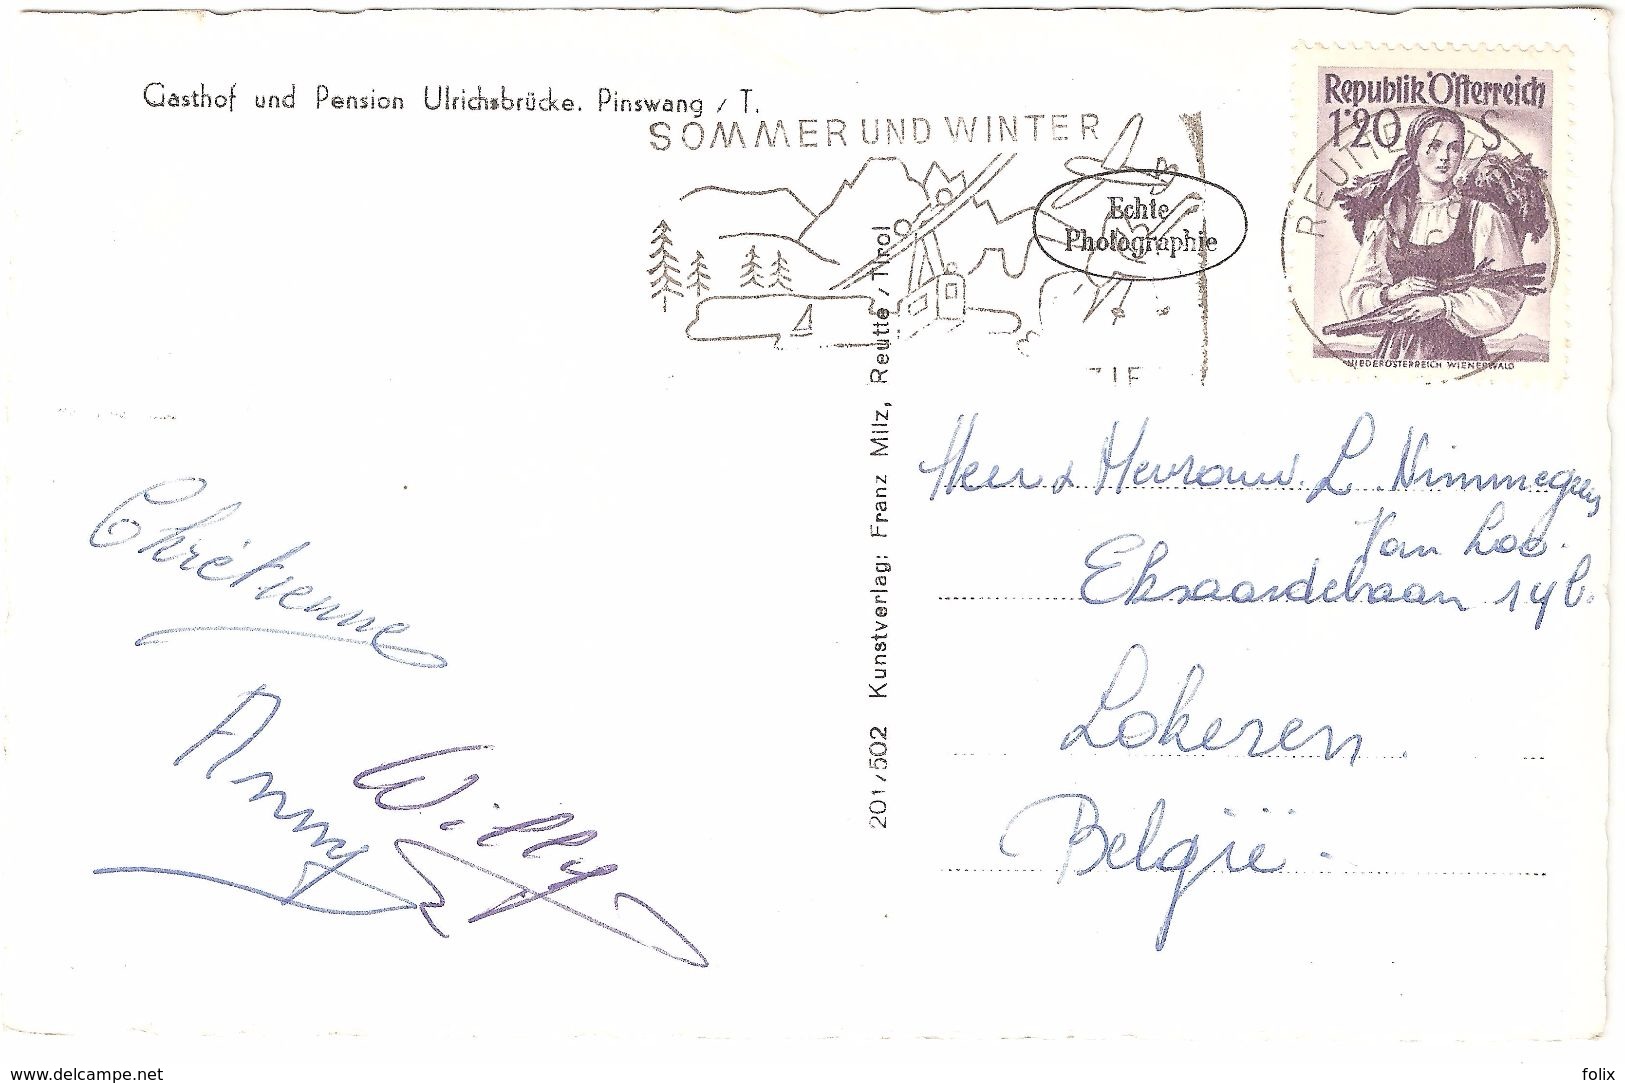 Gasthof und Pension Ulrichsbrücke. Pinswang / T.
SOMMER UND WINTER
Echte
Photographie
Republik Österreich
1'20 S
REUTTE
NIEDERÖSTERREICH WIENERWALD
201/502 Kunstverlag: Franz Milz, Reutte / Tirol
Chrétienne
Anny
Willy
Heer & Mevrouw. L. Nimmegeers
Van Loo.
Eksaardebaan 14b.
Lokeren.
België.
www.delcampe.net
felix